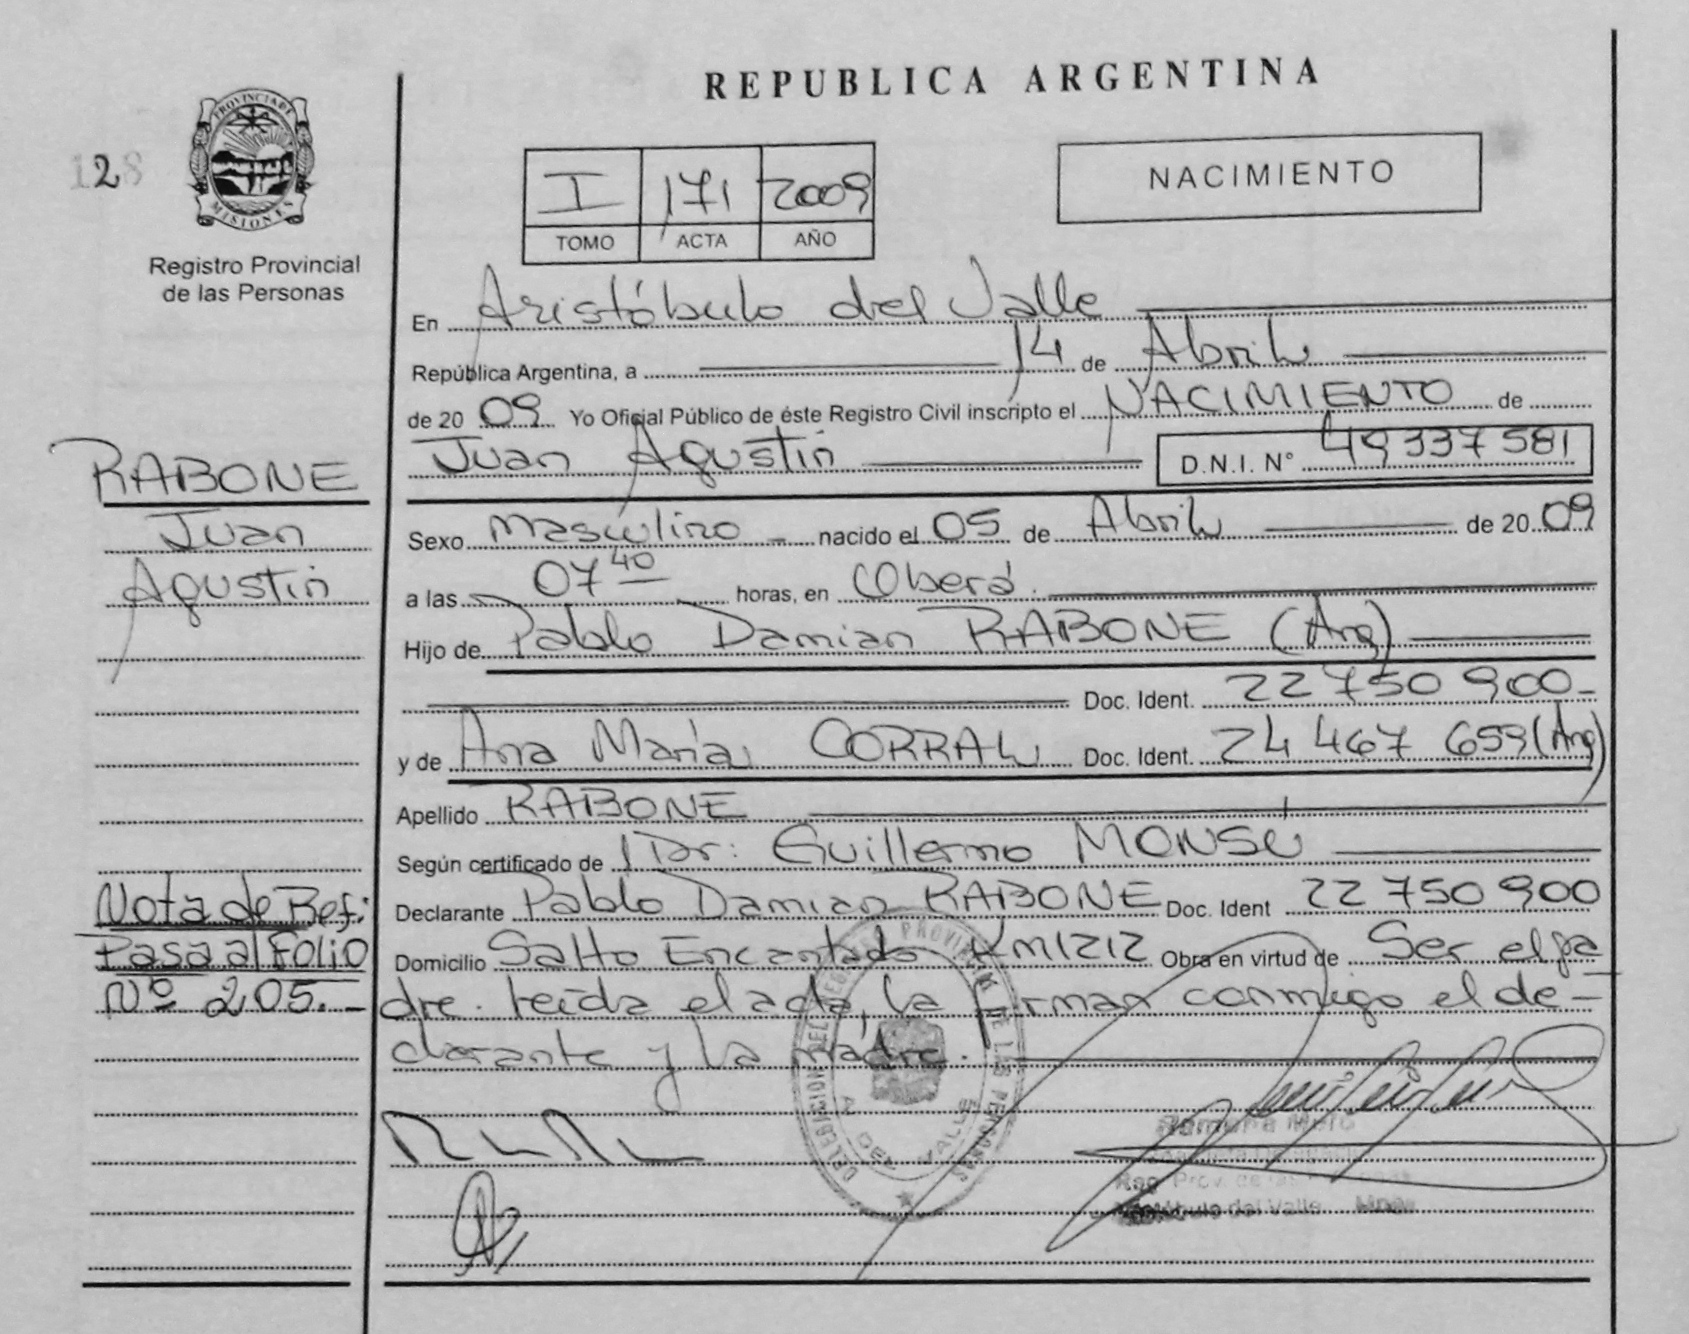 REPUBLICA ARGENTINA
128
PROVINCIA DE
MISIONES
Registro Provincial
de las Personas
I 171 2009
TOMO ACTA AÑO
NACIMIENTO
En Aristóbulo del Valle
República Argentina, a 14 de Abril
de 2009 Yo Oficial Público de éste Registro Civil inscripto el NACIMIENTO de
Juan Agustin D.N.I. N° 49337581
RABONE
Juan
Agustin
Sexo masculino nacido el 05 de Abril de 2009
a las 07 40 horas, en Oberá.
Hijo de Pablo Damian RABONE (Arg)
Doc. Ident. 22 750 900-
y de Ana María CORRAL Doc. Ident. 24 467 659 (Arg)
Apellido RABONE
Según certificado de Dr: Guillermo MONSU
Declarante Pablo Damian RABONE Doc. Ident 22 750 900
Domicilio Salto Encantado KM1212 Obra en virtud de Ser el pa
dre. leida el acta, la firman conmigo el de-
clarante y la madre.
Nota de Ref:
Pasa al Folio
Nº 205.-
DELEGACION DEL REGISTRO PROVINCIAL DE LAS PERSONAS
A. DEL VALLE
Ramona Melo
Reg. Prov. de las
del Valle Mnes